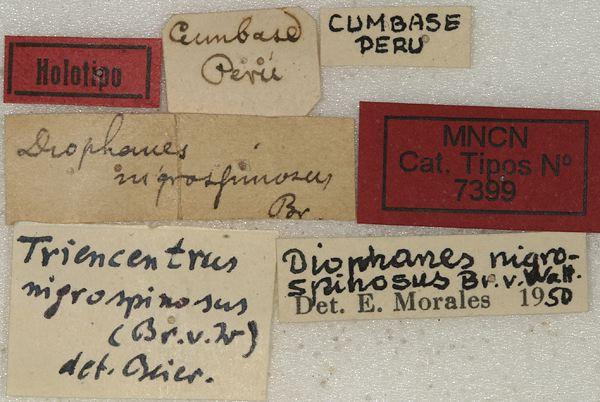 Holotipo
Cumbase
Perú
CUMBASE
PERU
Diophanes
nigrospinosus
Br.
MNCN
Cat. Tipos Nº
7399
Triencentrus
nigrospinosus
(Br.v.W)
det. Beier.
Diophanes nigro-
spinosus Br.v.Watt.
Det. E. Morales 1950